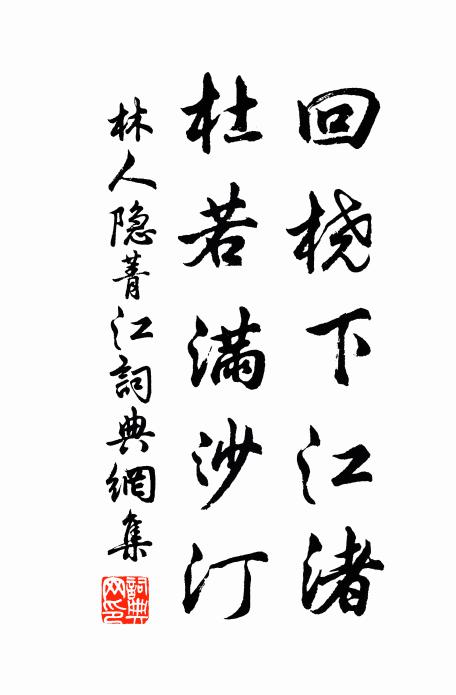 回桡下江渚
杜若满沙汀
林人隐菁江詞典網集
詞典网印